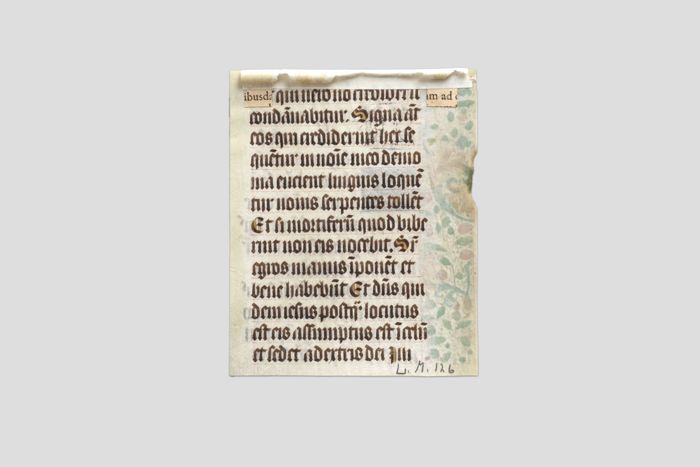 ibusd
qui vero no crediderit
m ad
condānabitur. Signa āt
eos qui crediderint hec se
quētur in noīe meo demo
nia eicient linguis loquē
tur nouis serpentes tollēt
Et si mortiferū quod bibe
rint non eis nocebit. Sr̄
egros manus īponēt et
bene habebūt Et dn̄s qui
dem iesus postq̄ locutus
est eis assumptus est ī celū
et sedet a dextris dei
L. M. 126